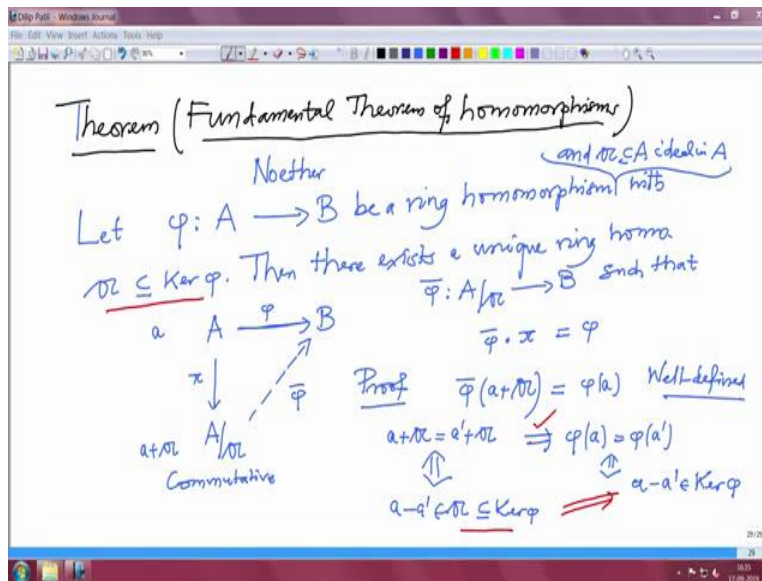 Dilip Patil - Windows Journal
File Edit View Insert Actions Tools Help
Theorem (Fundamental Theorem of homomorphisms)
Noether
and 𝔞 ⊆ A ideal in A
Let φ: A ⟶ B be a ring homomorphism with
𝔞 ⊆ Ker φ. Then there exists a unique ring homo.
φ̄: A/𝔞 ⟶ B such that
a A ⟶ B
φ
φ̄ ∘ π = φ
π φ̄
Proof φ̄(a+𝔞) = φ(a) Well-defined
a+𝔞 A/𝔞
a+𝔞 = a'+𝔞 ⇒ φ(a) = φ(a')
Commutative
⇕ ⇕
a-a' ∈ 𝔞 ⊆ Ker φ ⟹ a-a' ∈ Ker φ
29/29
29
16:35